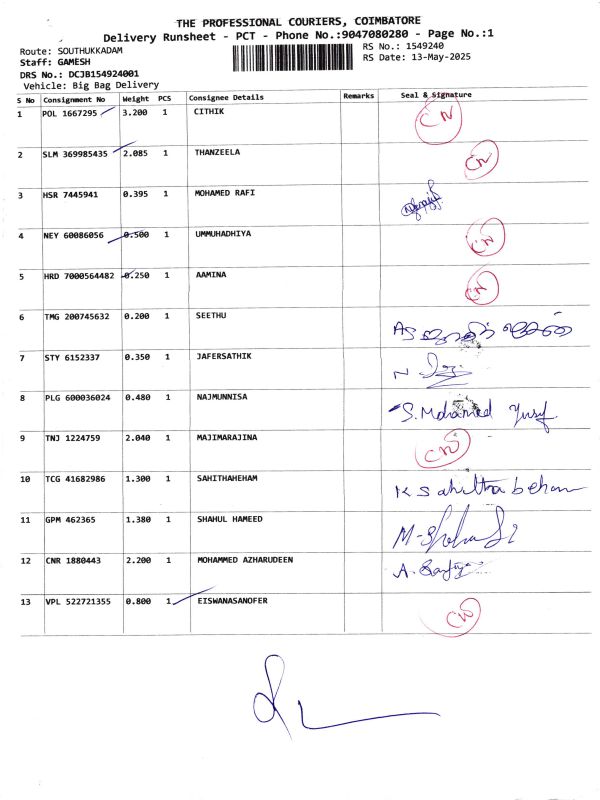 THE PROFESSIONAL COURIERS, COIMBATORE
Delivery Runsheet - PCT - Phone No.:9047080280 - Page No.:1
Route: SOUTHUKKADAM
RS No.: 1549240
Staff: GAMESH
RS Date: 13-May-2025
DRS No.: DCJB154924001
Vehicle: Big Bag Delivery
S No Consignment No Weight PCS Consignee Details Remarks Seal & Signature
1 POL 1667295 3.200 1 CITHIK CN
2 SLM 369985435 2.085 1 THANZEELA CN
3 HSR 7445941 0.395 1 MOHAMED RAFI
4 NEY 60086056 0.500 1 UMMUHADHIYA CN
5 HRD 7000564482 0.250 1 AAMINA CN
6 TMG 200745632 0.200 1 SEETHU AS
7 STY 6152337 0.350 1 JAFERSATHIK N
8 PLG 600036024 0.480 1 NAJMUNNISA S. Mohamed Yusuf.
9 TNJ 1224759 2.040 1 MAJIMARAJINA CN
10 TCG 41682986 1.300 1 SAHITHAHEHAM K Sahitha beham
11 GPM 462365 1.380 1 SHAHUL HAMEED M-
12 CNR 1880443 2.200 1 MOHAMMED AZHARUDEEN A.
13 VPL 522721355 0.800 1 EISWANASANOFER CN